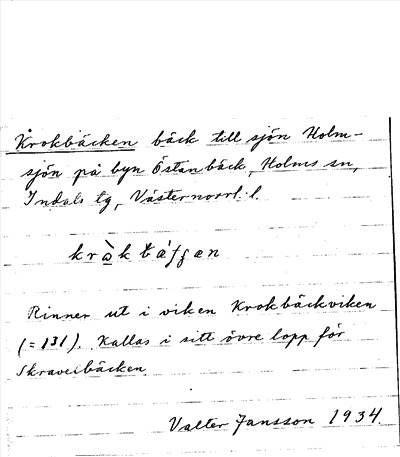 Krokbäcken bäck till sjön Holm-
sjön på byn Östanbäck, Holms sn,
Indals tg, Västernorrl. l.
Rinner ut i viken Krokbäckviken
(= 131). Kallas i sitt övre lopp för
Valter Jansson 1934.